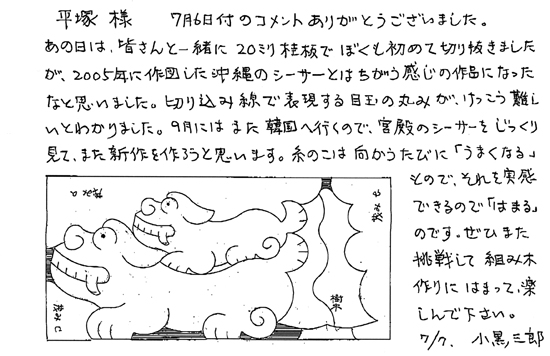 平塚 様　7月6日付のコメントありがとうございました。
あの日は、皆さんと一緒に20ミリ桂板でぼくも初めて切り抜きました
が、2005年に作図した沖縄のシーサーとはちがう感じの作品になった
なと思いました。切り込み線で表現する目玉の丸みが、けっこう難し
いとわかりました。9月にはまた韓国へ行くので、宮殿のシーサーをじっくり
見て、また新作を作ろうと思います。糸のこは向かうたびに「うまくなる」
もので、それを実感
できるので「はまる」
のです。ぜひまた
挑戦して組み木
作りにはまって、楽
しんで下さい。
7/7、小黒三郎
樹木